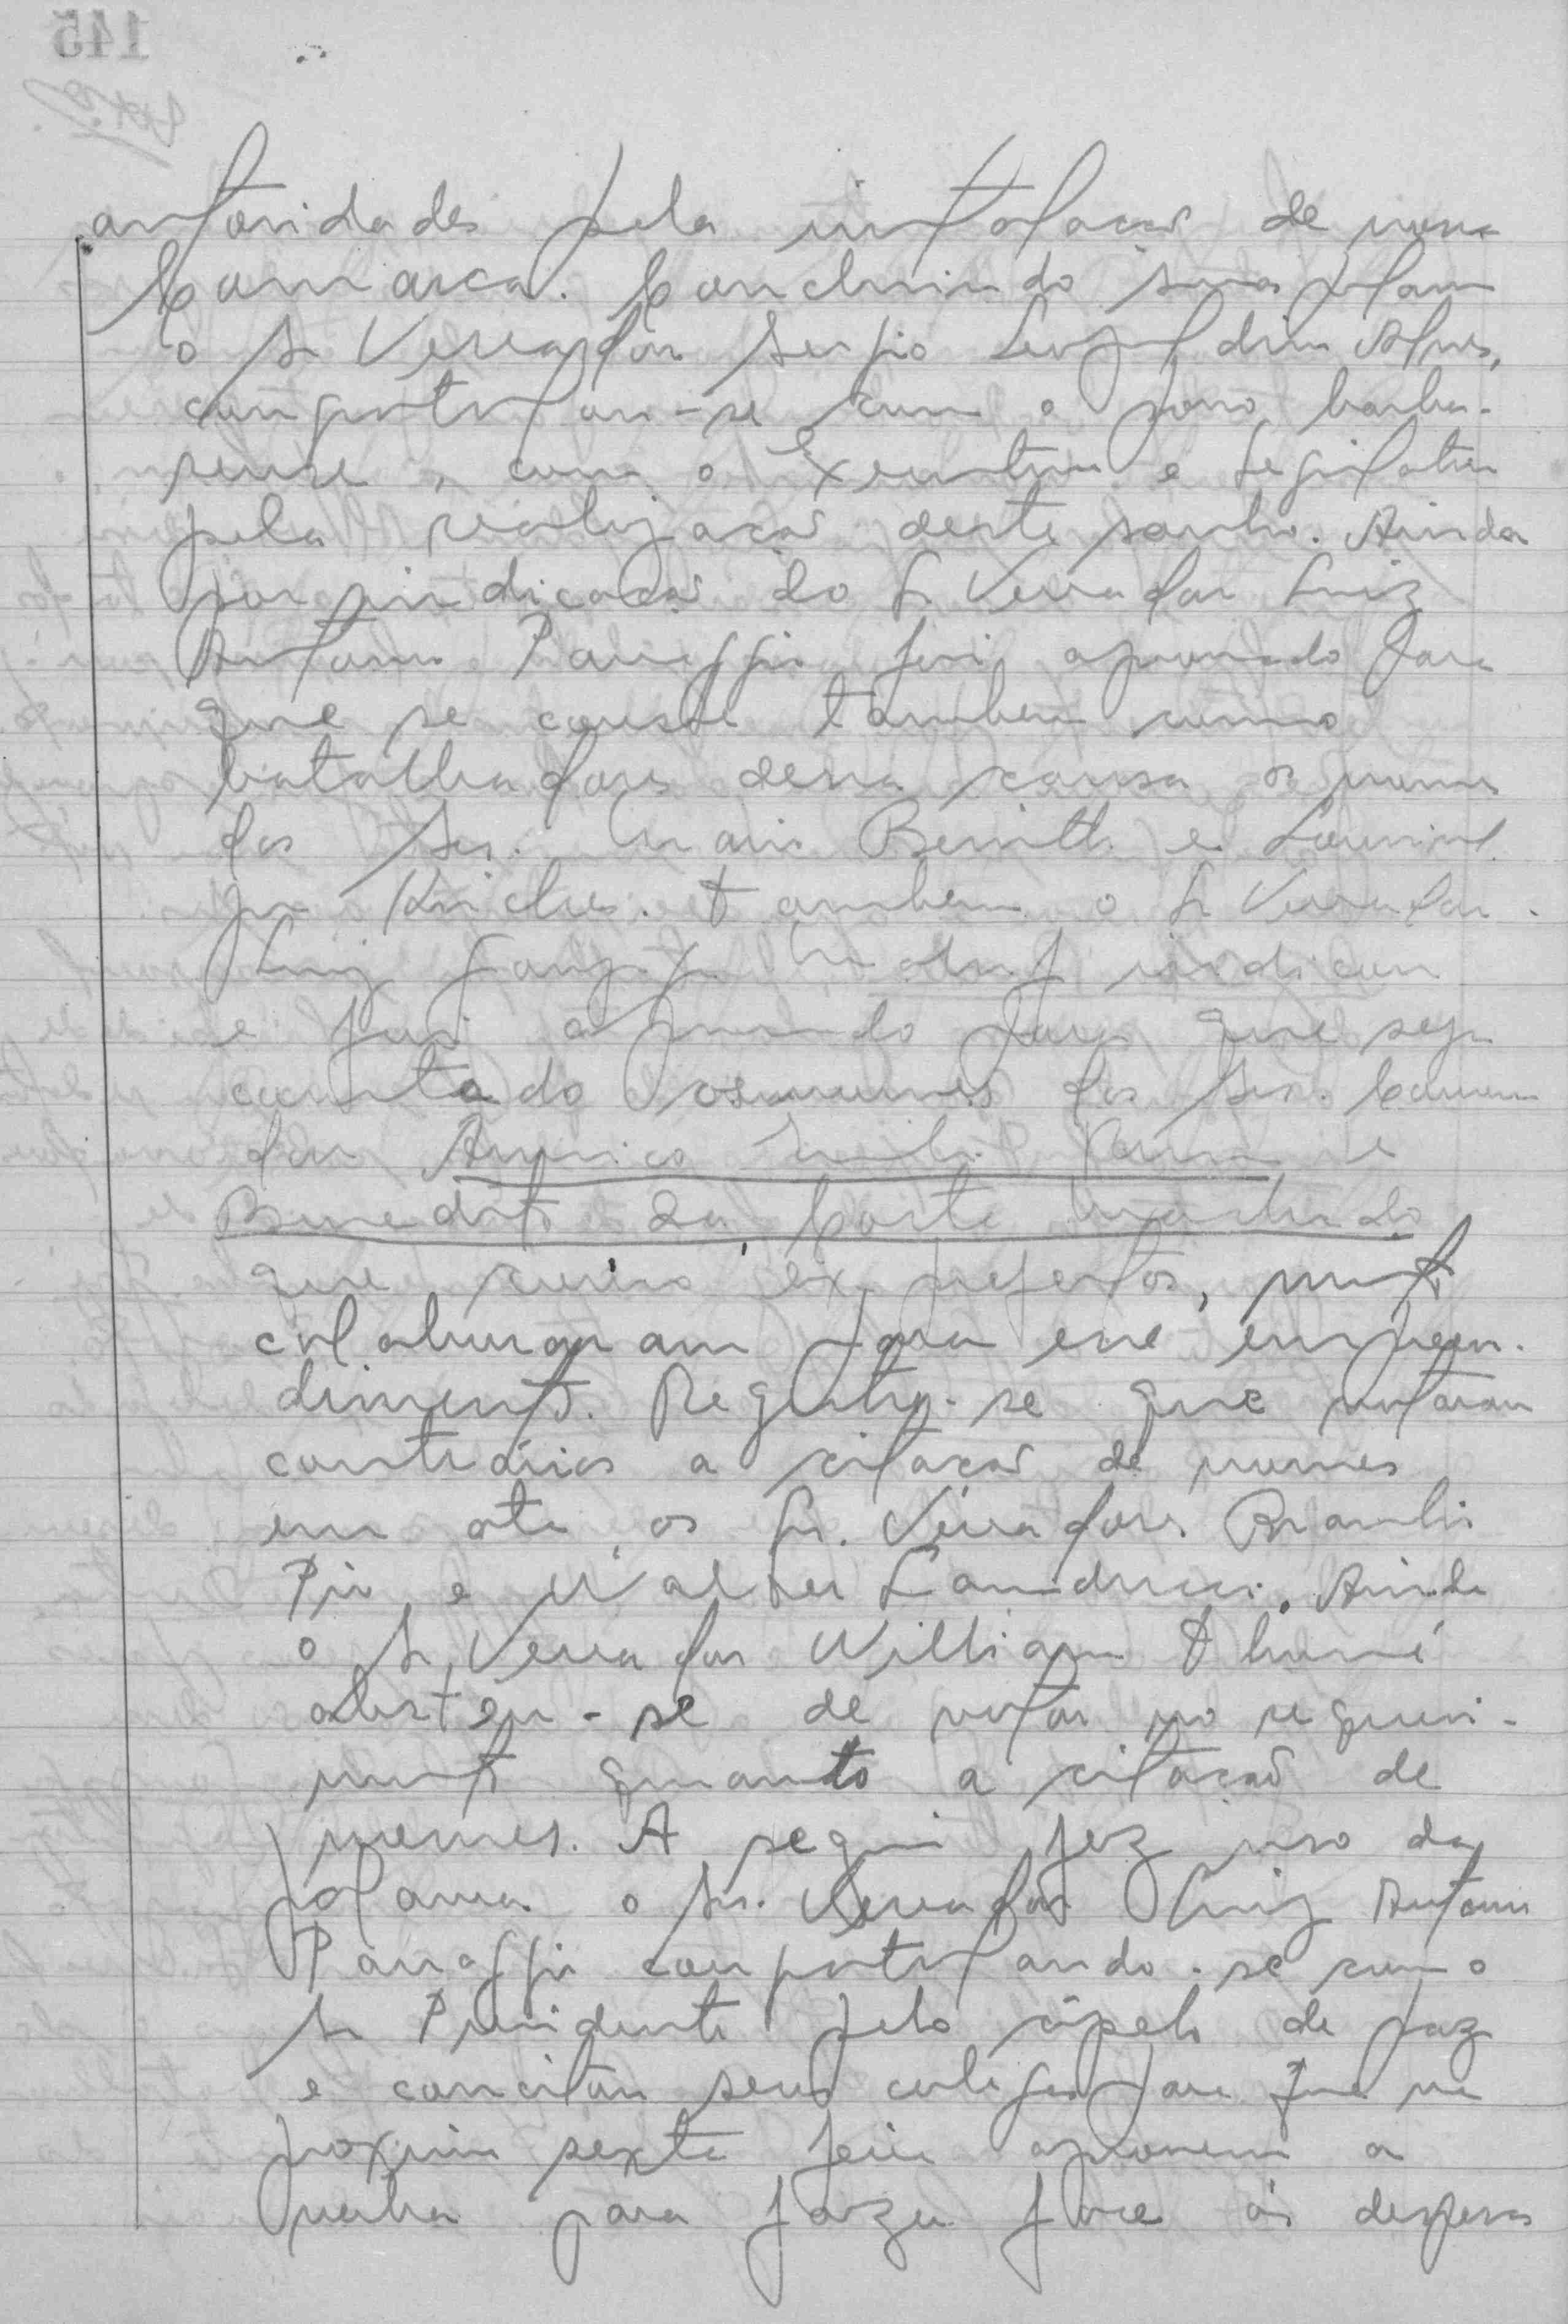 autoridades pela instalação de nossa
Comarca. Concluindo suas palavras
o Sr Vereador Sergio Leopoldino Alves,
congratulou-se com o povo barba-
rense, com o Executivo e Legislativo
pela realização deste sonho. Ainda
por indicação do Sr Vereador Luiz
Antonio Panaggio foi aprovado para
que se conste tambem como
batalhadores dessa causa os nomes
dos Srs. Mario Benitti e Lourival
Kriches. Tambem o Sr Vereador
Luiz indicou
e foi aprovado para que seja
constado os nomes dos Srs. Comen
dador Americo Emilio Romi e
Benedito da Costa Machado
que como ex prefeitos, muito
colaboraram para esse empreen-
dimento. Registra-se que votaram
contrários a citação de nomes
em ata os Sr. Vereadores Braulio
Pio e Walter Landucci. Ainda
o Sr Vereador William Thomé
absteu-se de votar no requeri-
mento quanto a citação de
nomes. A seguir fez uso da
palavra o Sr. Vereador Luiz Antonio
Panaggio congratulando-se com o
Sr Presidente pelo apelo de paz
e concitou seus colegas para que na
proxima sexta feira aprovem a
verba para fazer face às despesas